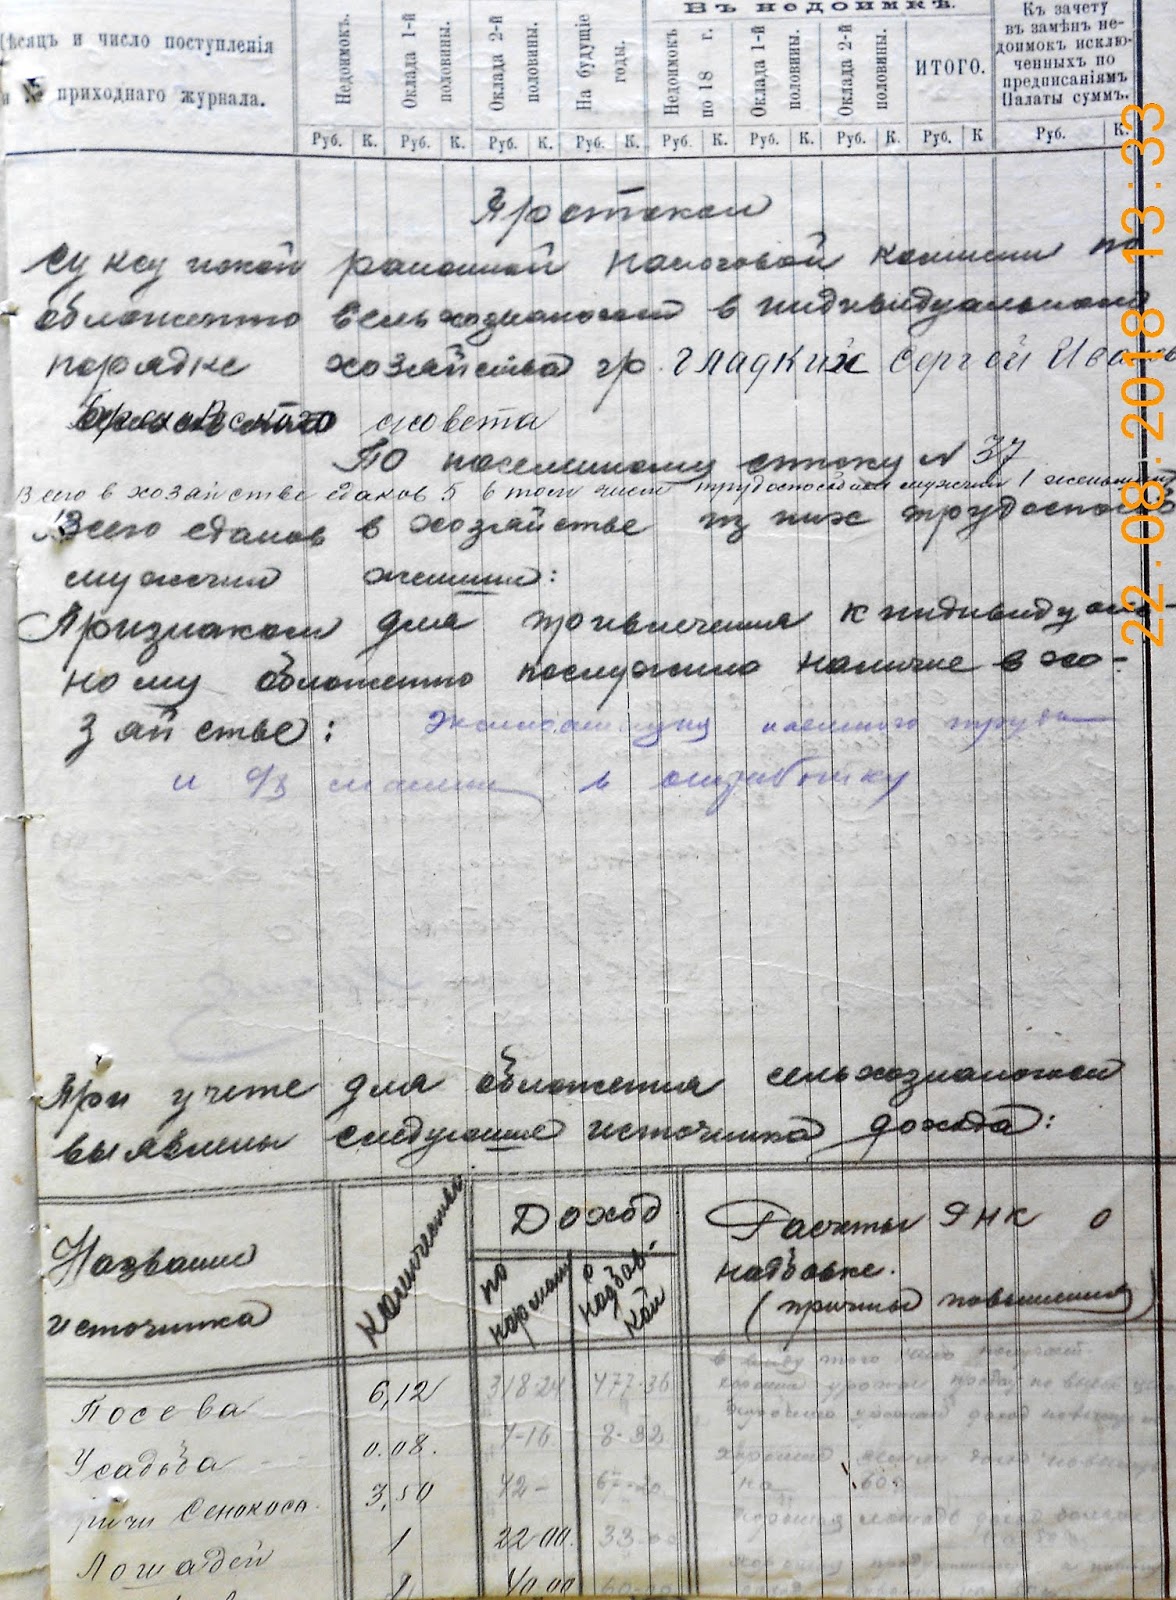 Въ недоимкѣ.
Мѣсяцъ и число поступленія
и № приходнаго журнала.
Недоимокъ.
Оклада 1-й половины.
Оклада 2-й половины.
На будущіе годы.
Недоимокъ по 18 г.
Оклада 1-й половины.
Оклада 2-й половины.
ИТОГО.
Къ зачету
въ замѣнъ не-
доимок исклю-
ченныхъ по
предписаніямъ
Палаты суммъ.
Руб. К. Руб. К. Руб. К. Руб. К. Руб. К. Руб. К. Руб. К. Руб. К Руб. К.
Протокол
Суксунской районной налоговой комиссии по
обложению сельхозналогом в индивидуальном
порядке хозяйства гр. Гладких Сергей Иванов
совета
По поселенному списку № 37
Всего в хозяйстве едаков 5 в том числе трудоспособн мужчин 1 женщин
Всего едаков в хозяйстве из них трудоспособ
мужчин женщин:
Признаком для привлечения к индивидуаль-
ному обложению послужило наличие в хо-
зяйстве: Эксплоатация наемного труда
и с/х машин в отработку
При учете для обложения сельхозналогом
выявлены следующие источника дохода:
Название
источника
Количество
Доход
по нормам
с надбав-
кой
Расчеты РНК о
надбавке.
(причины повышения)
Посева 6,12 318-24 477-36
Усадьба 0.08. 7-16 8-32
Сенокоса 3,50 42- 67-20
на 60%
Лошадей 1 22-00. 33-00
40.00 60-00
22.08.2018 13:33